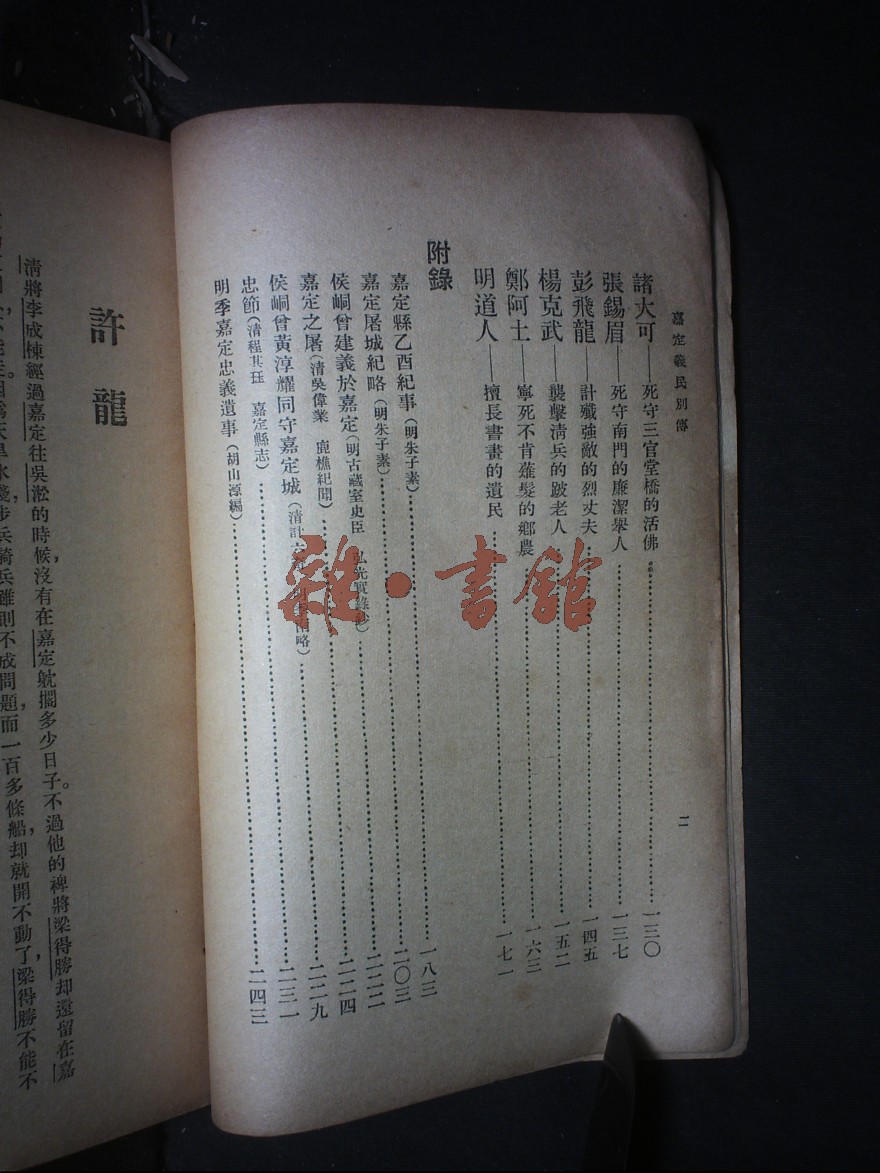 嘉定義民別傳
二
諸大可——死守三官堂橋的活佛……一三〇
張錫眉——死守南門的廉潔舉人……一三七
彭飛龍——計殲強敵的烈丈夫……一四五
楊克武——襲擊清兵的跛老人……一五二
鄭阿土——寧死不肯薙髮的鄉農……一六三
明道人——擅長書畫的遺民……一七一
附錄
嘉定縣乙酉紀事(明朱子素)……一八三
嘉定屠城紀略(明朱子素)……二〇三
侯峒曾建義於嘉定(明古藏室史臣 弘光實錄鈔)……二二二
嘉定之屠(清吳偉業 鹿樵紀聞)……二二四
侯峒曾黃淳耀同守嘉定城(清計 略)……二二九
忠節(清程其珏 嘉定縣志)……二三一
明季嘉定忠義遺事(胡山源編)……二四三
雜·書館
許龍
清將李成棟經過嘉定往吳淞的時候,沒有在嘉定躭擱多少日子。不過他的裨將梁得勝却還留在嘉
水淺,步兵騎兵雖則不成問題,而一百多條船却就開不動了,梁得勝不能不